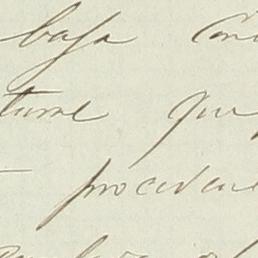 baja Con
tume que
proceden